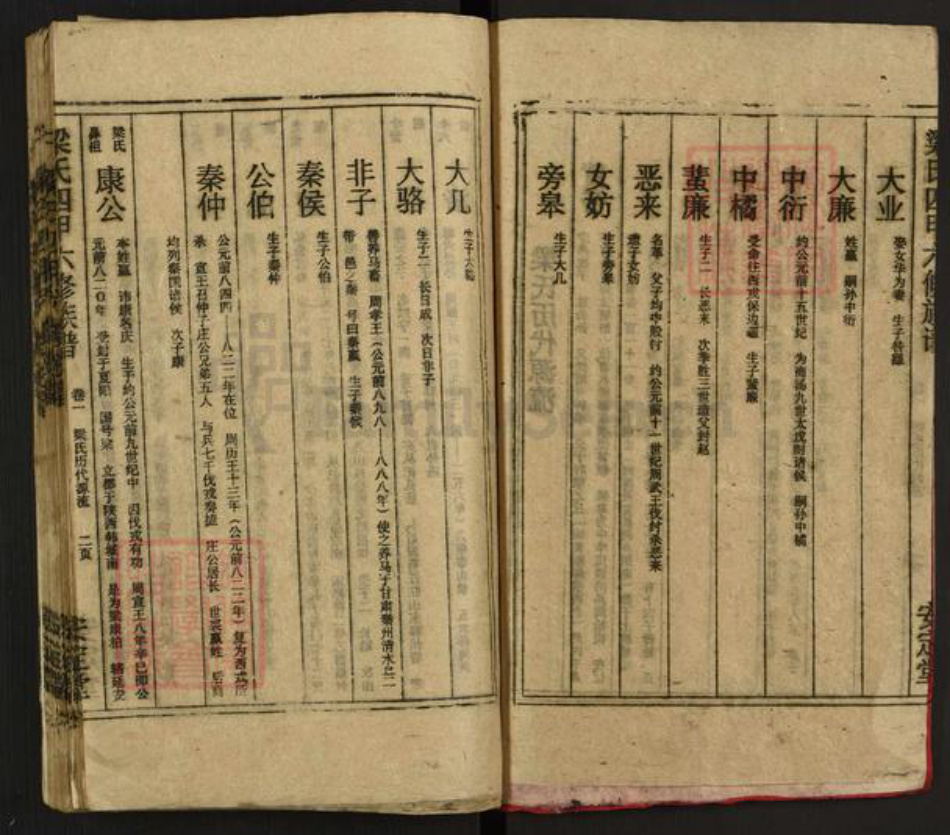 梁氏四甲六修族谱
安定堂
大业
娶女华为妻 生子
大廉
姓嬴 嗣孙中衍
中衍
约公元前十五世纪 为商汤九世太戊时诸候 嗣孙中橘
中橘
受命往西戎保边疆 生子蜚廉
蜚廉
生子二 长恶来 次季胜三世造父封赵
恶来
名革 父子均事殷纣 约公元前十一世纪周武王伐纣杀恶来
遗子女妨
女妨
生子旁皋
旁皋
生子大几
大几
生子大骆
大骆
生子二 长曰成 次曰非子
非子
善养马畜 周孝王(公元前八九八——八八八年)使之养马于甘肃秦州清水县一
带 邑之秦 号曰秦嬴 生子秦候
秦侯
生子公伯
公伯
生子秦仲
秦仲
公元前八四四——八二二年在位 周厉王十三年(公元前八二二年)复为西戎所
杀 宣王召仲子庄公兄弟五人 与兵七千伐戎奏捷 庄公居长 世袭嬴姓 后裔
均列秦国诸候 次子康
梁氏
鼻祖
康公
本姓嬴 讳康名庆 生于约公元前九世纪中 因伐戎有功 周宣王八年辛巳即公
元前八二0年 受封于夏阳 国号梁 立都于陕西韩城南 是为梁康伯
梁氏四甲六修族谱
卷一
梁氏历代源流
二页
安定堂